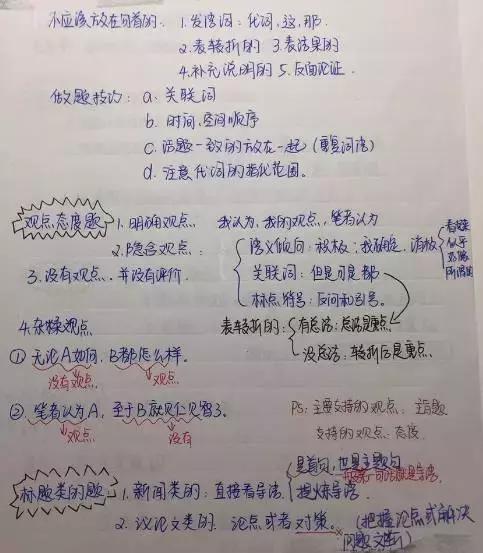 不应该放在句首的. 1.发语词: 代词, 这, 那.
2.表转折的 3.表结果的
4.补充说明的 5.反面论证.
做题技巧: a. 关联词
b. 时间、空间顺序
c. 话题一致的放在一起 (重复词语)
d. 注意代词的指代范围.
观点态度题
1.明确观点. 我认为、我的观点、笔者认为
2.隐含观点:
语义倾向: 积极; 我确定, 消极
看起来
似乎
恐怕
所谓
关联词: 但是 可是 都
标点符号: 反问和引号.
3.没有观点. 并没有评价.
4.杂糅观点
表转折的: 有总法: 总法是重点.
没总法: 转折后是重点.
① 无论A如何, B都怎么样.
没有观点. 观点.
②. 笔者认为A, 至于B就见仁见智了.
观点. 没有
PS: 主要支持的观点: 主旨题
支持的观点: 态度.
标题类的题
1.新闻类的: 直接看导语.
是首句, 也是主题句
第一句话就是导语.
提炼导语.
2. 议论文类的. 论点或者对策. (把握论点或解决
问题文章)